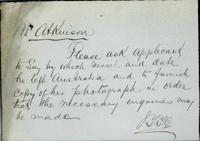 Mr Atkinson
Please ask Applicant
to say by which vessel and date
he left Australia and to furnish
copy of his photograph in order
that the necessary inquiries may
be made